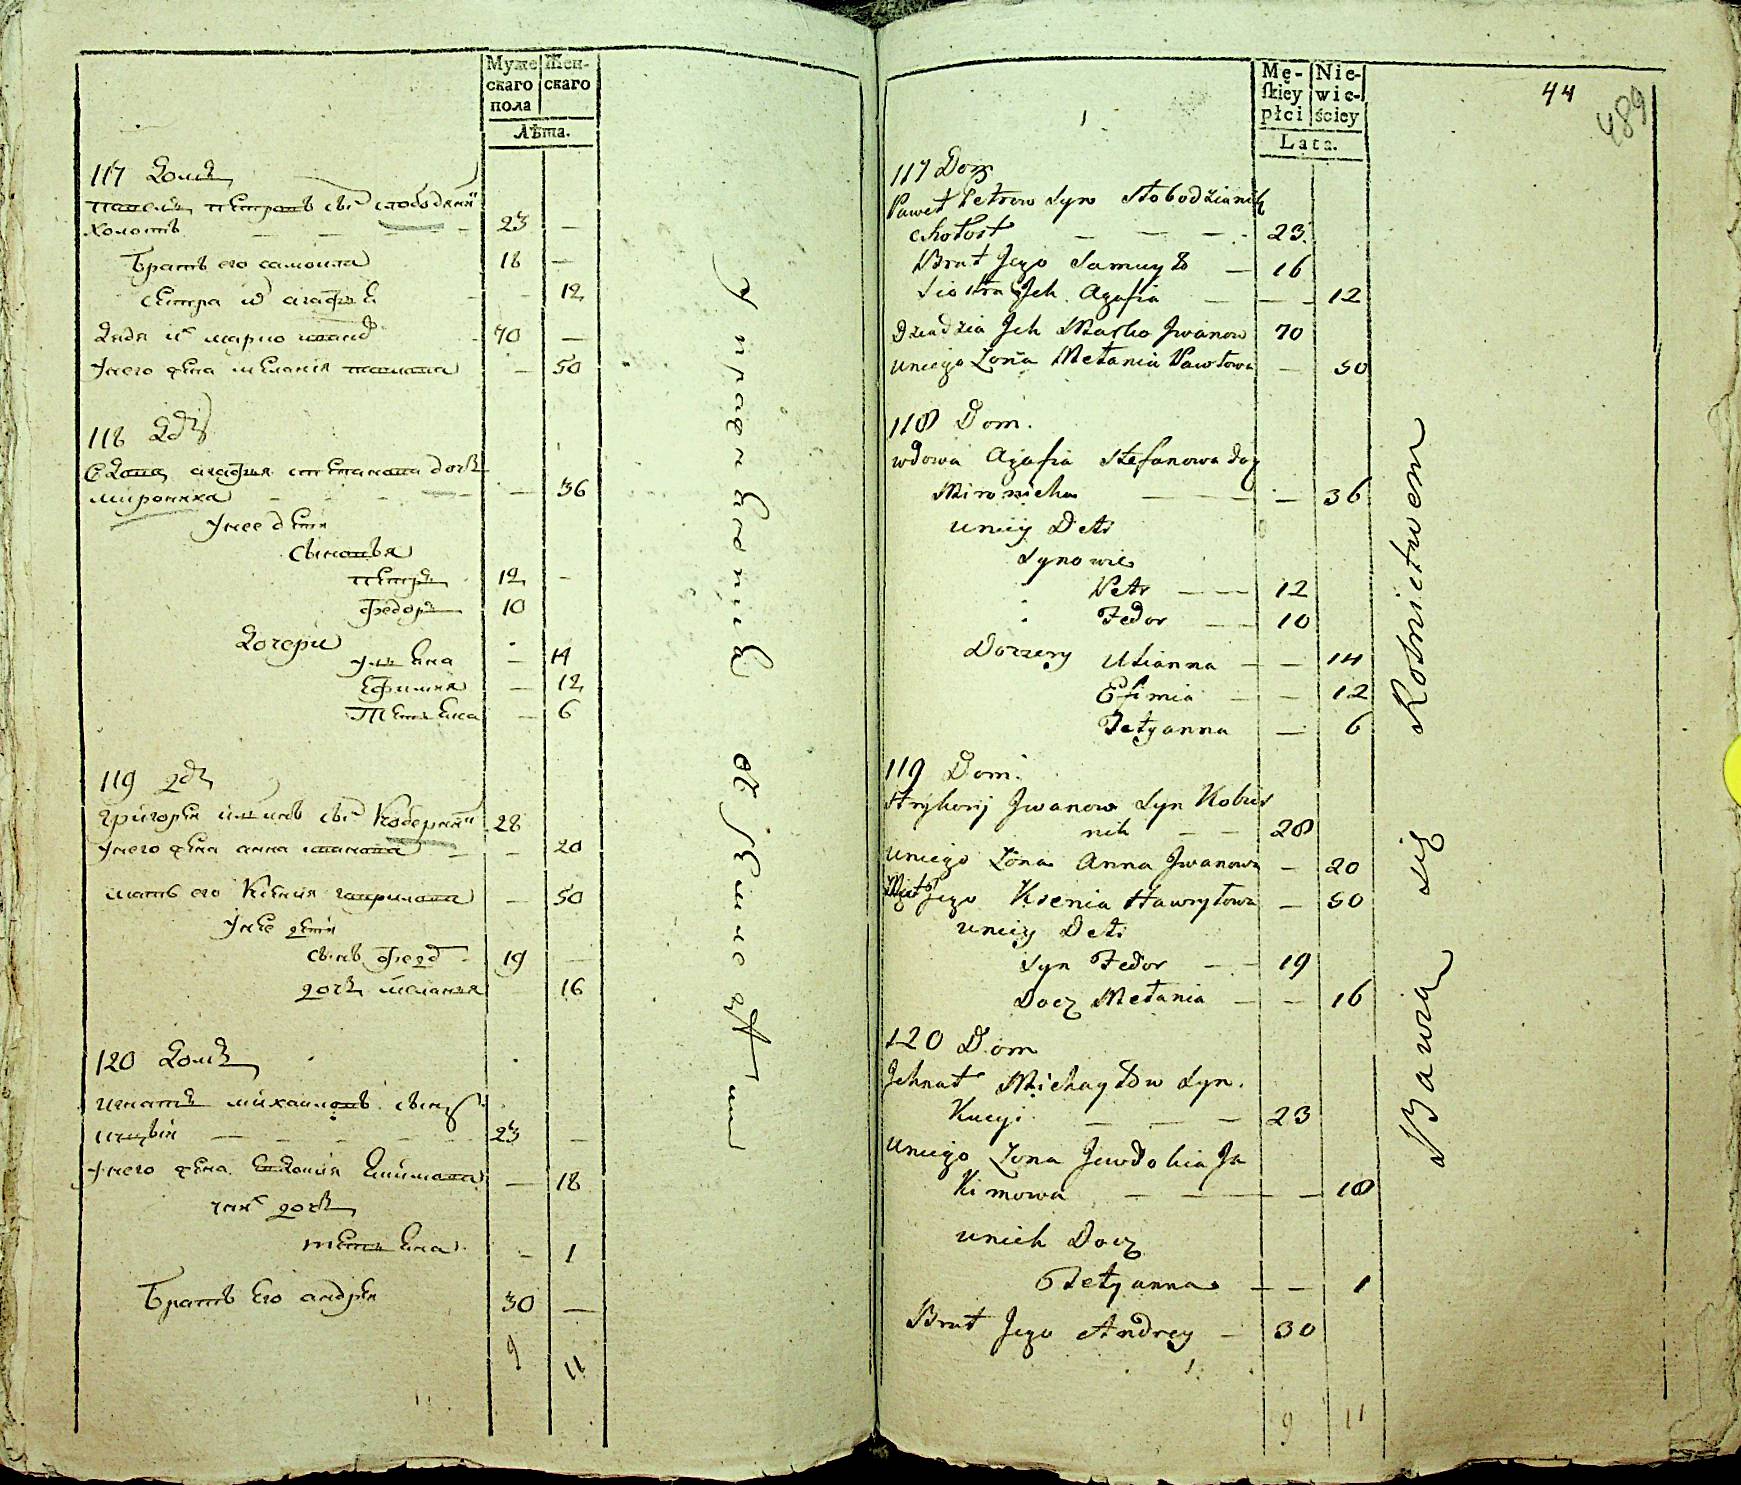 Муже
скаго
пола
Жен-
скаго
Лѣта.
117 Домъ
Павелъ Петровъ сы͏нъ Слободяни
холостъ — — — — 23 —
братъ его Самоила 18 —
сестра их Агафия — — 12
дядя их Марко Иванов 70 —
у него жена Мелания Павлова — 50
118 Дом
вдова Агафия Степанова дочь
Мирониха — — — — 36
у нее дети
сыновья
Петръ 12 -
Федоръ 10
дочери
Ульяна — 14
Ефимия — 12
Татьяна — 6
119 дом
Григорей Иванов сын Коберник 28
у него жена Анна Иванова — — 20
мать его Ксения Гаврилова — 50
у нее дети
сынъ Федор 19 —
дочь Мелания 16
120 Домъ
Игнатъ Михайловъ сынъ
— — — — 23 —
у него жена Евдокия Екимова — 18
у них дочь
Татьяна - 1
братъ его Андрей 30 —
9 11
Упражняются
Mę-
skiey
płci
Nie-
wie-
ściey
Lata.
44
489
117 Dom
Paweł Petrow Syn Słobodzianik
chołost — — — 23
Brat Jego Samuyło — 16
Siostra Jch Agafia — — 12
Dziadzia Jch Marko Jwanow 70
uniego Zona Mełania Pawłowa — 50
118 Dom.
wdowa Agafia Stefanowa doz
Mironicha — — — 36
uniey Deti
Synowie
Petr — — 12
Fedor — — 10
Doczery Ulianna — — 14
Efimia — — 12
Tetyanna — 6
119 Dom.
Hryhorij Jwanow Syn Kober
nik — — 28
uniego Zona Anna Jwanowa — 20
Mat' Jego Ksenia Hawryłowa — 50
uniey Deti
Syn Fedor — — 19
Docz Mełania — — 16
120 Dom
Jchnat Michayłow Syn.
Kucyi — — — 23
uniego Zona Jewdokia Ja
Kimowa — — — — 18
unich Docz
Tetyanna — — 1
Brat Jego Andrey — 30
9 11
Bawia się Rolnictwem